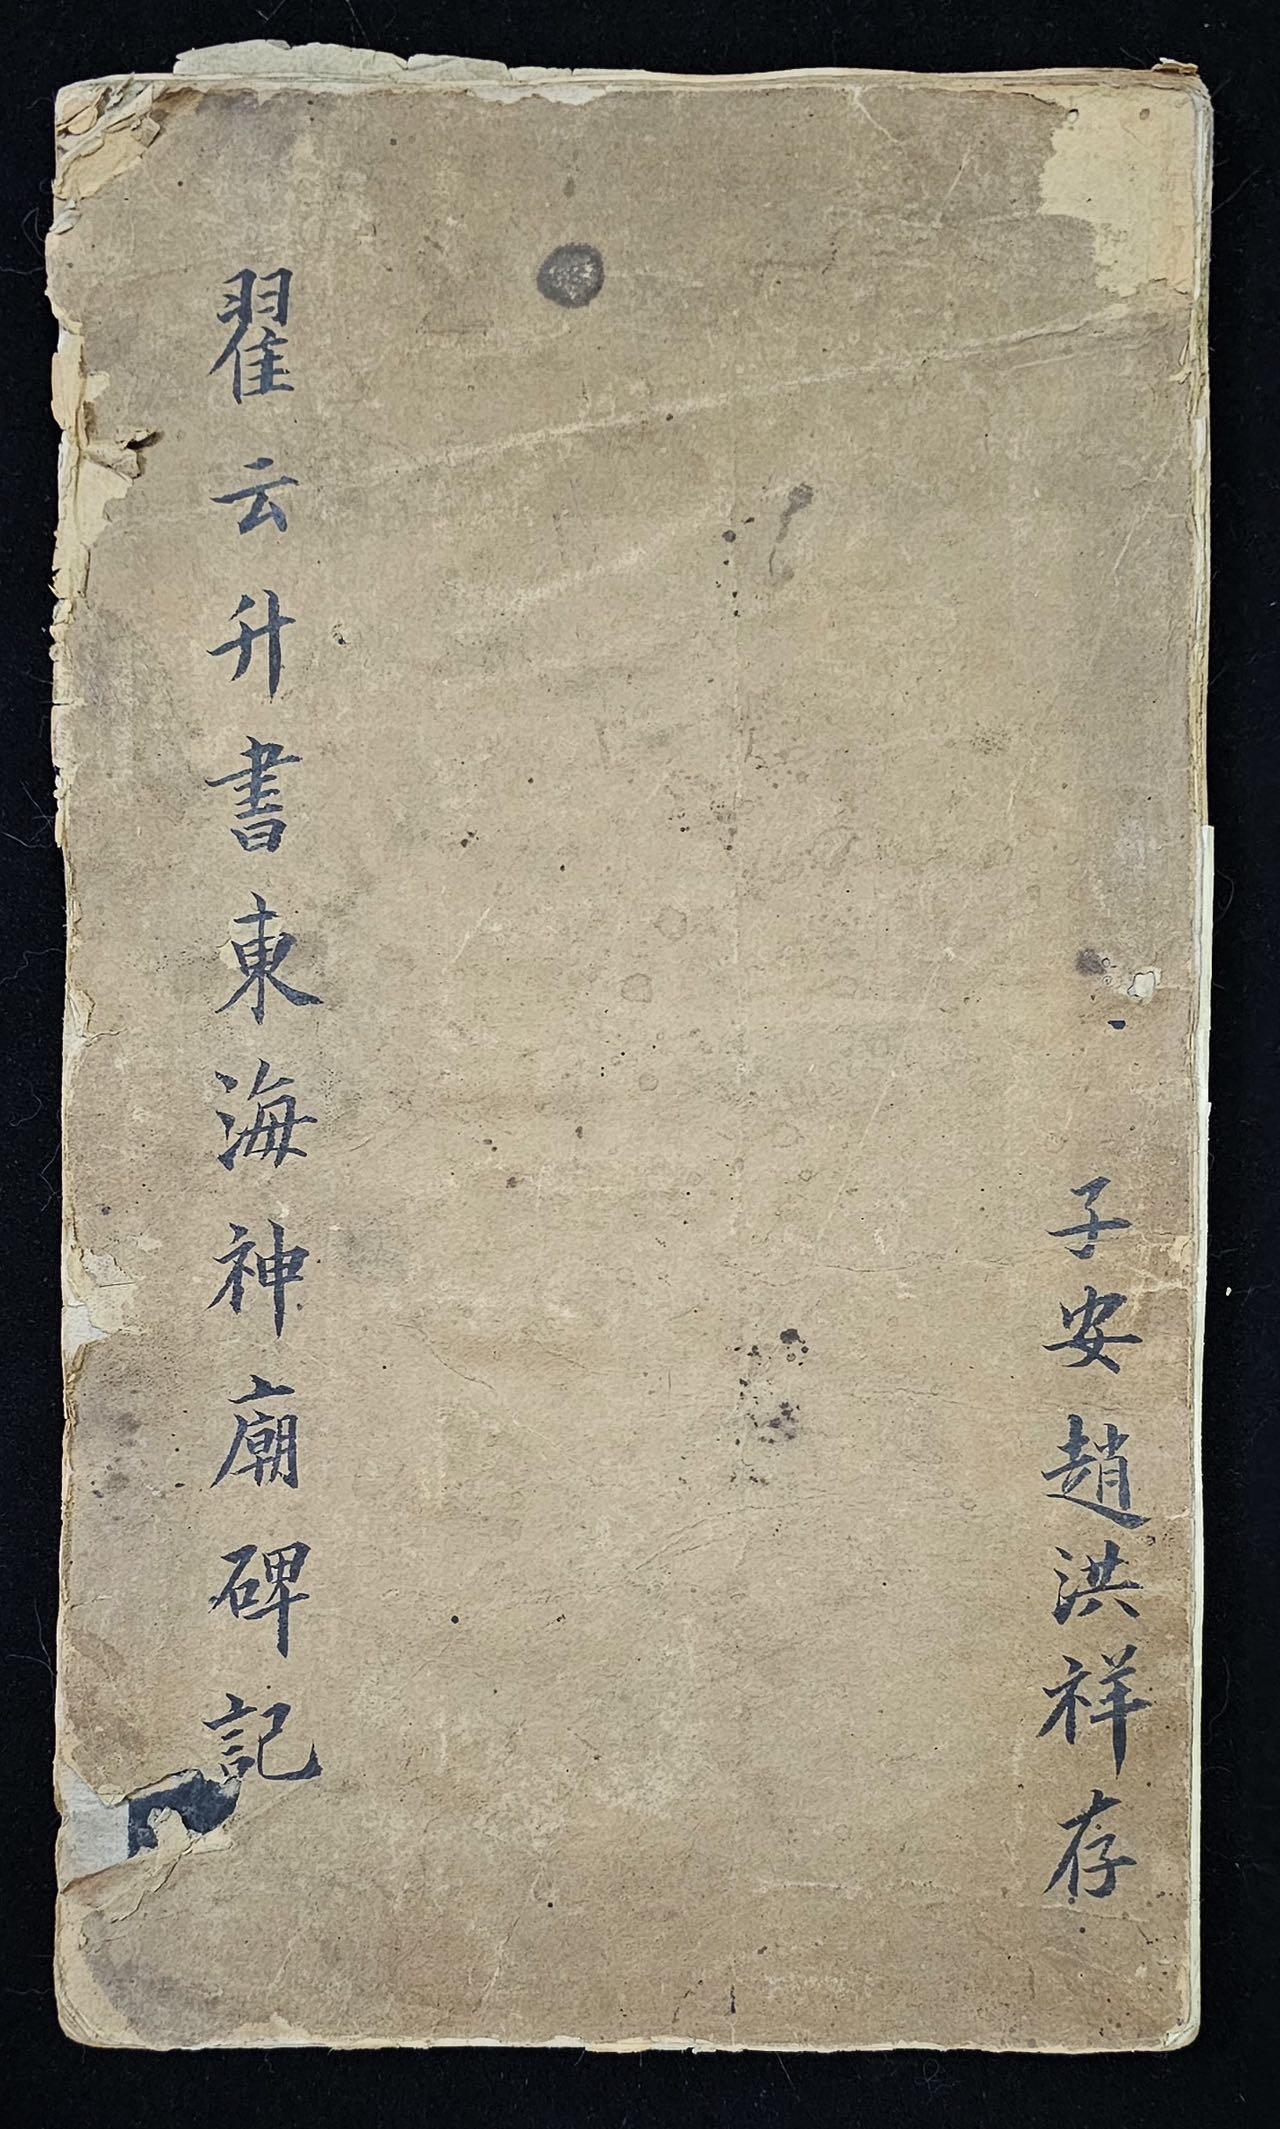 子安趙洪祥存
翟云升書東海神廟碑記